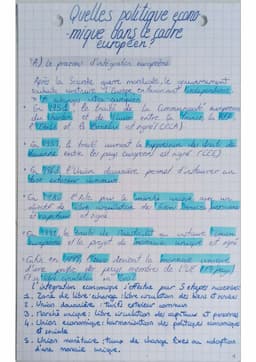 Quelles politique écono
-mique dans le cadre
européen ?
A) Le processus d'intégration européenne
Après la Seconde guerre mondiale, le gouvernement
souhaite construire l'Europe en
européen
la traité de la Communauté européenne
du Charbon et de l'Acier entre la France, la RFA
l'Italie et le Benelux est signé (CECA).
le traité suppression des droits de
douane entre les pays européens est signé (CEE).
l'Union douanière permet d'instaurer un
tarif extérieur commun
marché unique avec un
objectif de libre circulation des biens, services, personnes
et capitaux est signé.
le traité de Maastricht
européenne et le projet de monnaie unique est signé
Enfin en 1999, l'euro devient la monnaie unique
d'une partie des pays membres de l'UE
en 2002.
L'intégration économique s'effectue par 5 étapes successives :
1. Zone de libre échange : libre circulation des biens et services
2. Union douanière : tarif extérieur commun
3. Marché unique : libre circulation des capitaux et personnes
4. Union économique : harmonisation des politiques économiques
5. Union monétaire : taux de change fixes ou adoption
d'une monnaie unique.